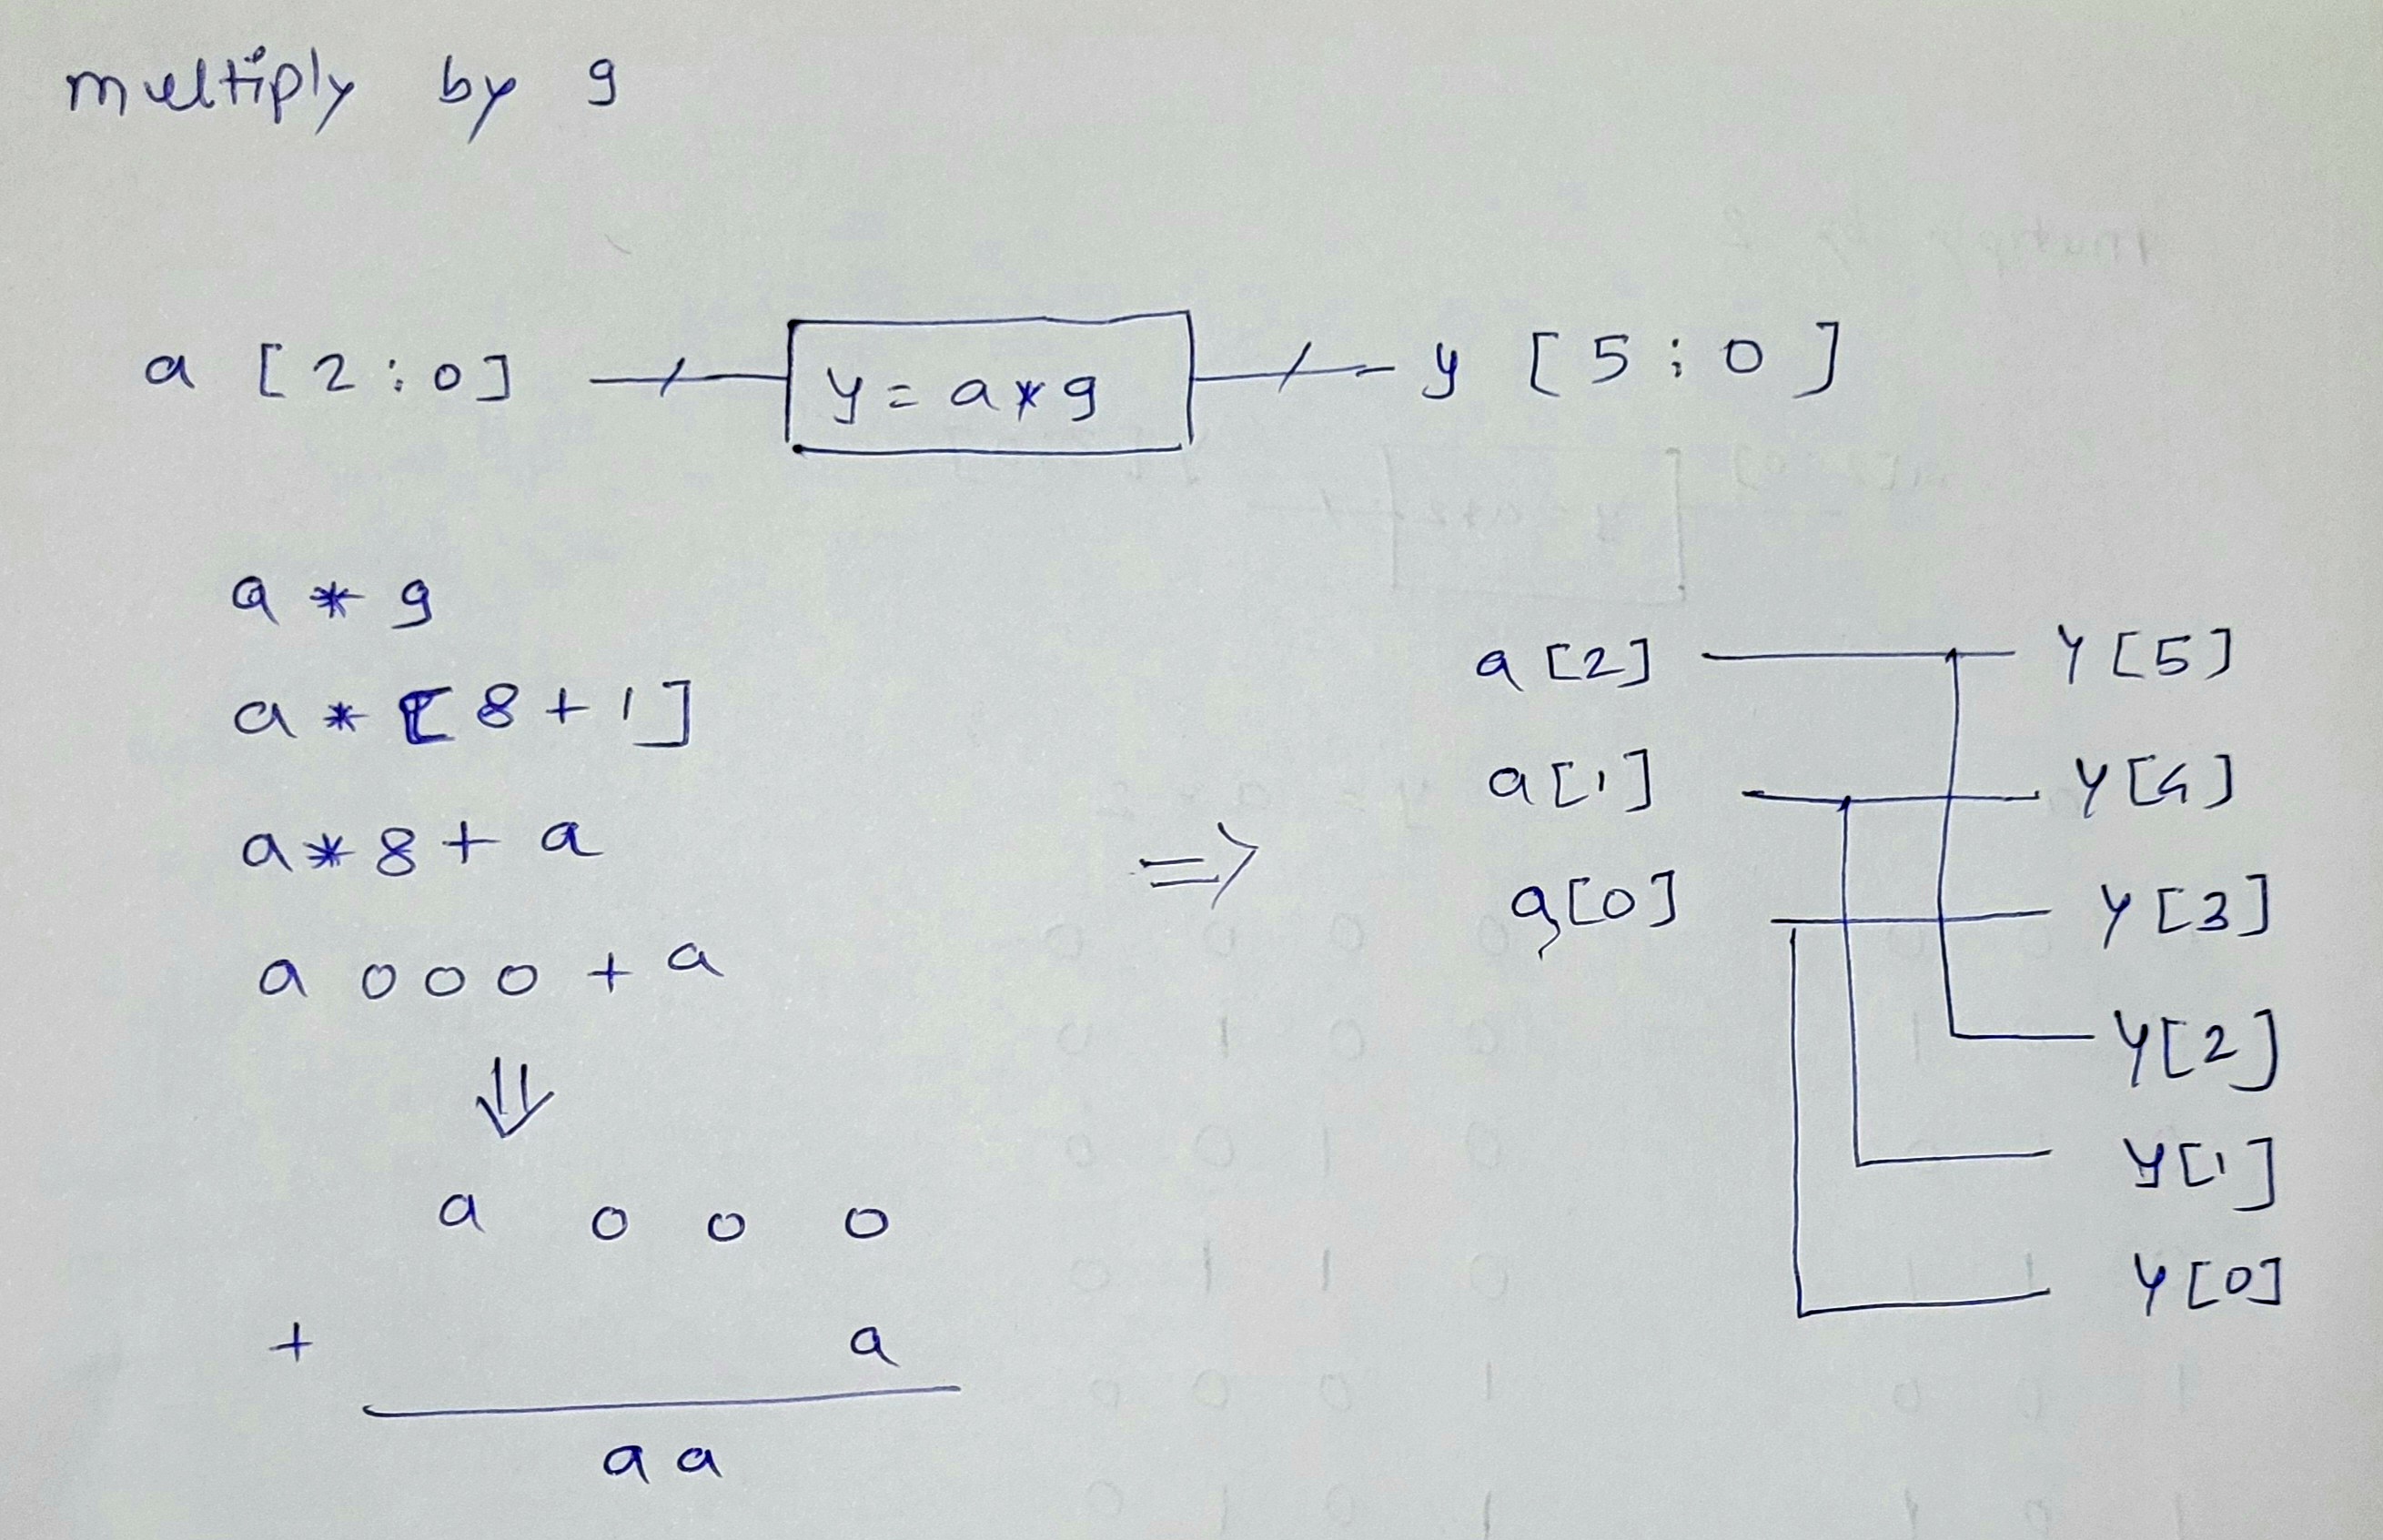 multiply by 9
a [2:0] y = a*9 y [5:0]
a * 9
a * [8+1]
a * 8 + a
a 000 + a
⇓
a 0 0 0
+ a
aa
⇒
a[2] Y[5]
a[1] Y[4]
a[0] Y[3]
Y[2]
y[1]
Y[0]